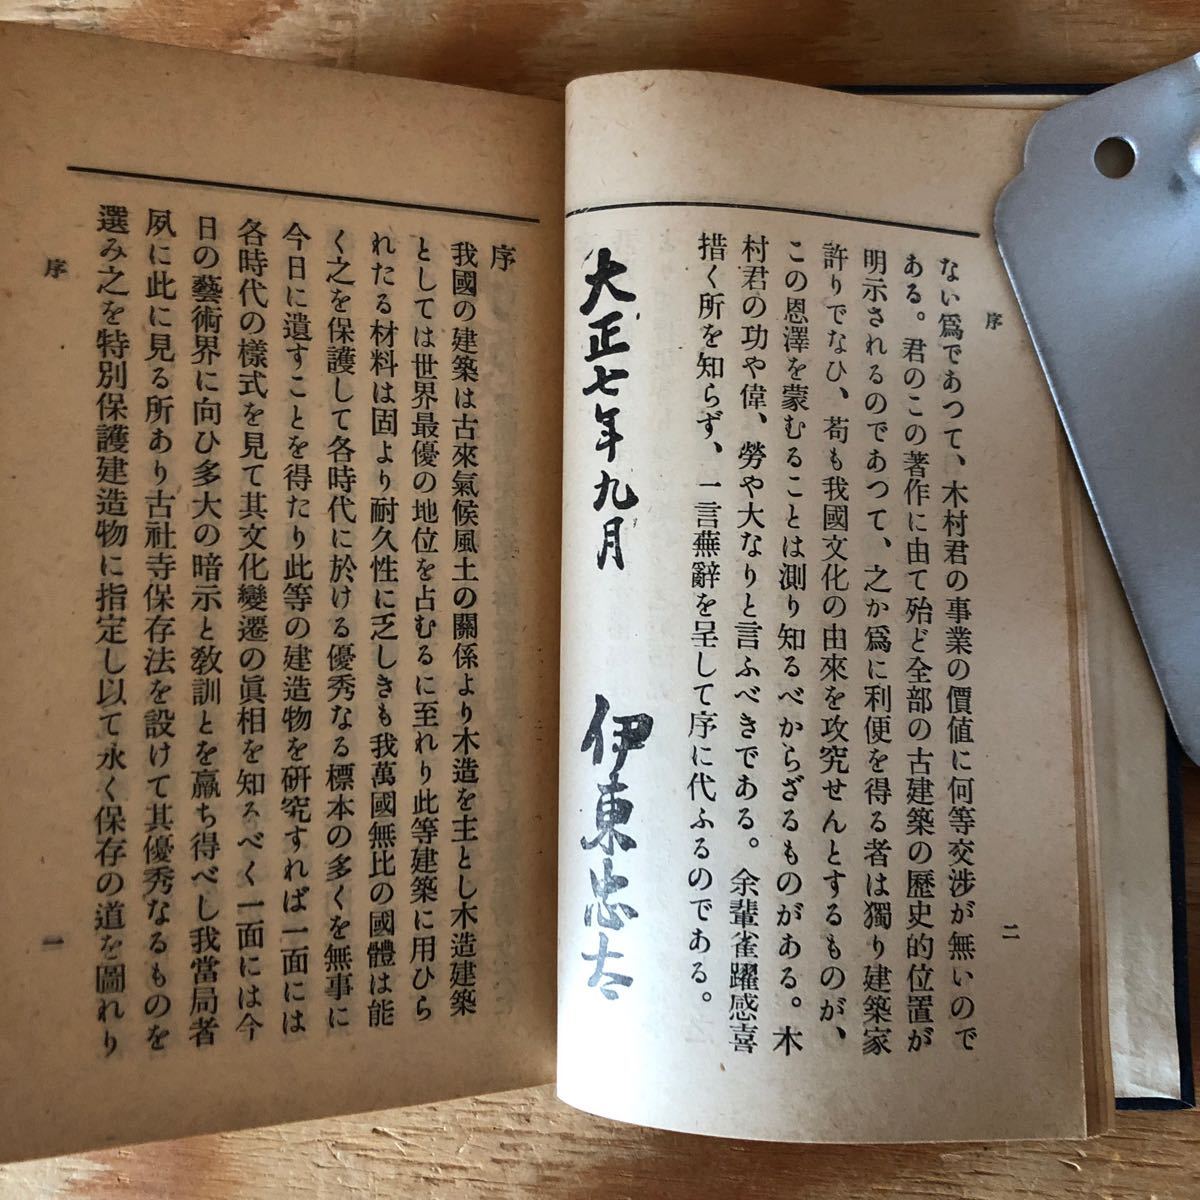 序
二
ない爲であつて、木村君の事業の價値に何等交渉が無いので
ある。君のこの著作に由て殆ど全部の古建築の歷史的位置が
明示されるのであつて、之か爲に利便を得る者は獨り建築家
許りでなひ、苟も我國文化の由來を攻究せんとするものが、
この恩澤を蒙むることは測り知るべからざるものがある。木
村君の功や偉、勞や大なりと言ふべきである。余輩雀躍感喜
措く所を知らず、一言蕪辭を呈して序に代ふるのである。
大正七年九月
伊東忠太
序
我國の建築は古來氣候風土の關係より木造を主とし木造建築
としては世界最優の地位を占むるに至れり此等建築に用ひら
れたる材料は固より耐久性に乏しきも我萬國無比の國體は能
く之を保護して各時代に於ける優秀なる標本の多くを無事に
今日に遺すことを得たり此等の建造物を硏究すれば一面には
各時代の樣式を見て其文化變遷の眞相を知るべく一面には今
日の藝術界に向ひ多大の暗示と敎訓とを贏ち得べし我當局者
夙に此に見る所あり古社寺保存法を設けて其優秀なるものを
選み之を特別保護建造物に指定し以て永く保存の道を圖れり
序
一